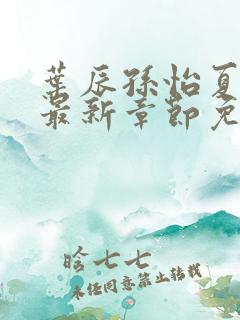 叶辰孙怡夏
最新章节免
晗七七
未经同意禁止转载